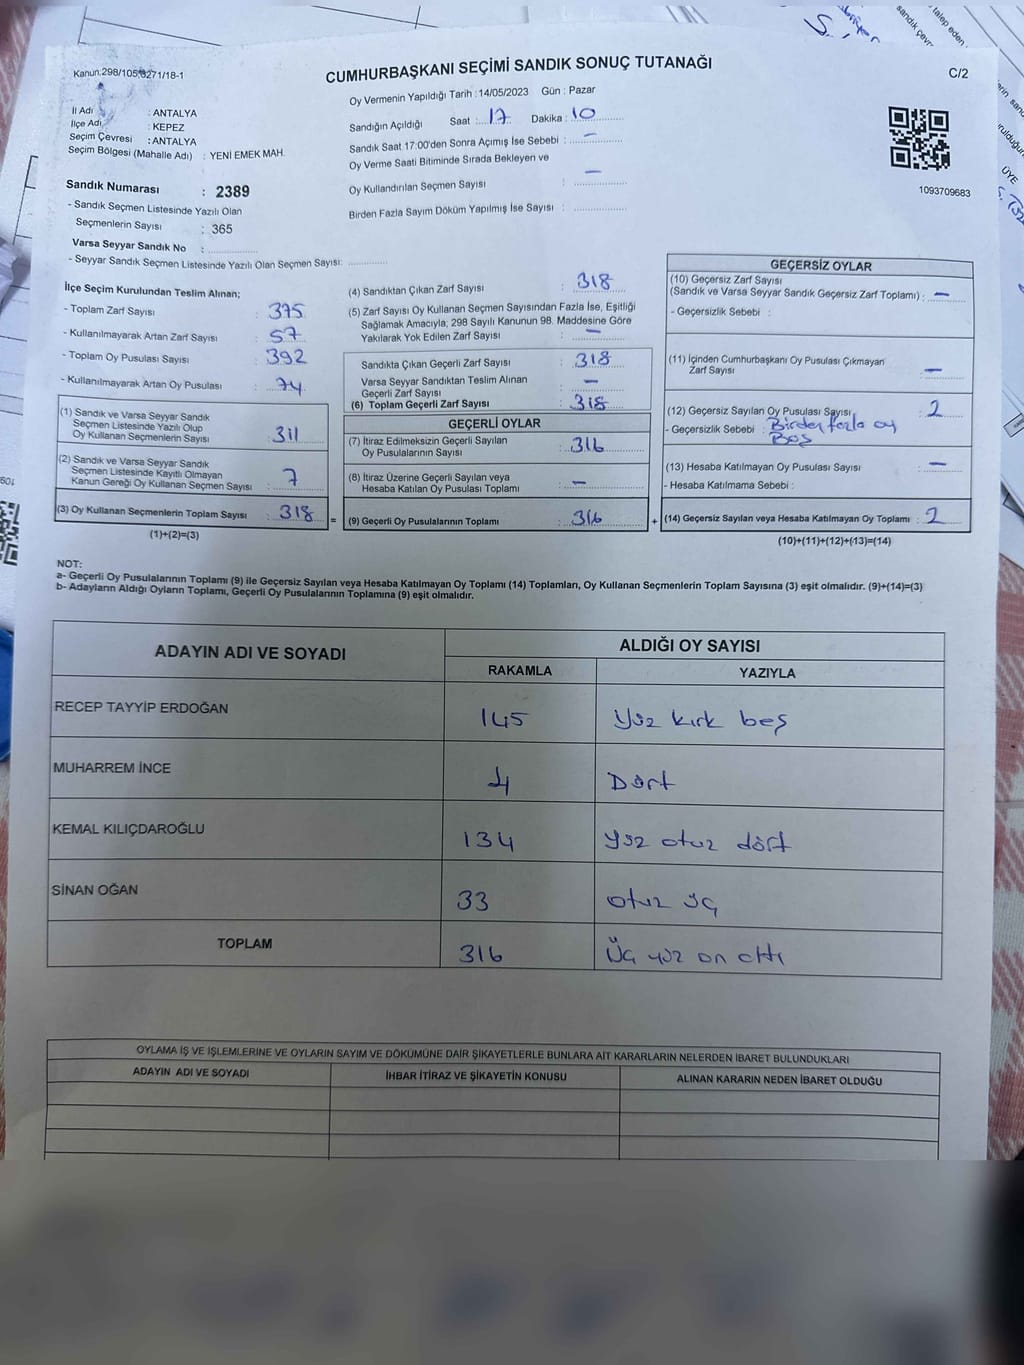 Kanun:298/105,6271/18-1
CUMHURBAŞKANI SEÇİMİ SANDIK SONUÇ TUTANAĞI
C/2
İl Adı : ANTALYA
İlçe Adı : KEPEZ
Seçim Çevresi : ANTALYA
Seçim Bölgesi (Mahalle Adı) : YENİ EMEK MAH.
Sandık Numarası : 2389
- Sandık Seçmen Listesinde Yazılı Olan
Seçmenlerin Sayısı : 365
Varsa Seyyar Sandık No :
- Seyyar Sandık Seçmen Listesinde Yazılı Olan Seçmen Sayısı:
Oy Vermenin Yapıldığı Tarih : 14/05/2023 Gün : Pazar
Sandığın Açıldığı Saat : 17 Dakika : 10
Sandık Saat 17:00'den Sonra Açımış İse Sebebi : –
Oy Verme Saati Bitiminde Sırada Bekleyen ve
Oy Kullandırılan Seçmen Sayısı : –
Birden Fazla Sayım Döküm Yapılmış İse Sayısı :
1093709683
İlçe Seçim Kurulundan Teslim Alınan;
- Toplam Zarf Sayısı : 375
- Kullanılmayarak Artan Zarf Sayısı : 57
- Toplam Oy Pusulası Sayısı : 392
- Kullanılmayarak Artan Oy Pusulası : 74
(1) Sandık ve Varsa Seyyar Sandık
Seçmen Listesinde Yazılı Olup
Oy Kullanan Seçmenlerin Sayısı : 311
(2) Sandık ve Varsa Seyyar Sandık
Seçmen Listesinde Kayıtlı Olmayan
Kanun Gereği Oy Kullanan Seçmen Sayısı : 7
(3) Oy Kullanan Seçmenlerin Toplam Sayısı : 318 =
(1)+(2)=(3)
(4) Sandıktan Çıkan Zarf Sayısı : 318
(5) Zarf Sayısı Oy Kullanan Seçmen Sayısından Fazla İse, Eşitliği
Sağlamak Amacıyla; 298 Sayılı Kanunun 98. Maddesine Göre
Yakılarak Yok Edilen Zarf Sayısı : –
Sandıkta Çıkan Geçerli Zarf Sayısı : 318
Varsa Seyyar Sandıktan Teslim Alınan
Geçerli Zarf Sayısı : –
(6) Toplam Geçerli Zarf Sayısı : 318
GEÇERLİ OYLAR
(7) İtiraz Edilmeksizin Geçerli Sayılan
Oy Pusulalarının Sayısı : 316
(8) İtiraz Üzerine Geçerli Sayılan veya
Hesaba Katılan Oy Pusulası Toplamı : –
(9) Geçerli Oy Pusulalarının Toplamı : 316 +
GEÇERSİZ OYLAR
(10) Geçersiz Zarf Sayısı
(Sandık ve Varsa Seyyar Sandık Geçersiz Zarf Toplamı) : –
- Geçersizlik Sebebi :
(11) İçinden Cumhurbaşkanı Oy Pusulası Çıkmayan
Zarf Sayısı : –
(12) Geçersiz Sayılan Oy Pusulası Sayısı : 2
- Geçersizlik Sebebi : Birden fazla oy
Boş
(13) Hesaba Katılmayan Oy Pusulası Sayısı : –
- Hesaba Katılmama Sebebi :
(14) Geçersiz Sayılan veya Hesaba Katılmayan Oy Toplamı : 2
(10)+(11)+(12)+(13)=(14)
NOT:
a- Geçerli Oy Pusulalarının Toplamı (9) ile Geçersiz Sayılan veya Hesaba Katılmayan Oy Toplamı (14) Toplamları, Oy Kullanan Seçmenlerin Toplam Sayısına (3) eşit olmalıdır. (9)+(14)=(3)
b- Adayların Aldığı Oyların Toplamı, Geçerli Oy Pusulalarının Toplamına (9) eşit olmalıdır.
ADAYIN ADI VE SOYADI
ALDIĞI OY SAYISI
RAKAMLA YAZIYLA
RECEP TAYYİP ERDOĞAN 145 Yüz kırk beş
MUHARREM İNCE 4 Dört
KEMAL KILIÇDAROĞLU 134 Yüz otuz dört
SİNAN OĞAN 33 otuz üç
TOPLAM 316 Üç yüz on altı
OYLAMA İŞ VE İŞLEMLERİNE VE OYLARIN SAYIM VE DÖKÜMÜNE DAİR ŞİKAYETLERLE BUNLARA AİT KARARLARIN NELERDEN İBARET BULUNDUKLARI
ADAYIN ADI VE SOYADI İHBAR İTİRAZ VE ŞİKAYETİN KONUSU ALINAN KARARIN NEDEN İBARET OLDUĞU